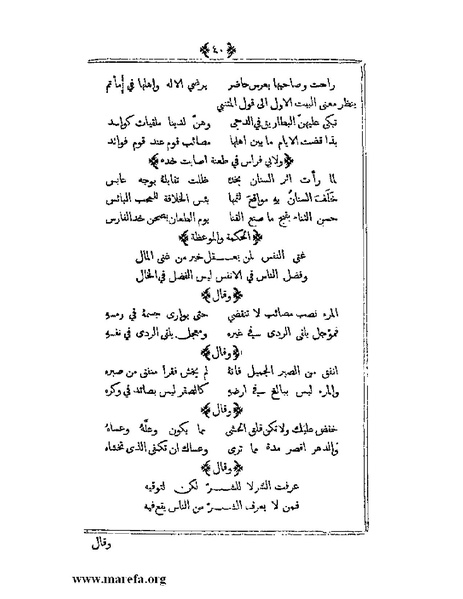 ﴿٤٠﴾
راحت وصاحبها بعرس حاضر يرضي الاله واهلها في مأتم
ينظر معنى البيت الاول الى قول المتنبي
تبكي عليهنّ البطاريق في الدجى وهنّ لدينا ملقيات كواسد
بذا قضت الايام ما بين اهلها مصائب قوم عند قوم فوائد
﴿ولابي فراس في طعنة اصابت خده﴾
لما رأت اثر السنان بخده ظلت تقابله بوجه عابس
خلف السنان به مواقع لثمها بئس الخلافة للمحب البائس
حسن الثناء بقبح ما صنع القنا يوم الطعان بصحن خد الفارس
﴿الحكمة والموعظة﴾
غنى النفس لمن يعـقل خير من غنى المال
وفضل الناس في الانفس ليس الفضل في الحال
﴿وقال﴾
المرء نصب مصائب لا تنقضي حتى يوارى جسمه في رمسه
فمؤجل يلقى الردى في غيره ومعجل يلقى الردى في نفسه
﴿وقال﴾
انفق من الصبر الجميل فانه لم يخش فقرا منفق من صبره
والمرء ليس ببالغ في ارضه كالصقر ليس بصائد في وكره
﴿وقال﴾
خفض عليك ولا تكن قلق الحشى مما يكون وعلّه وعساه
فالدهر اقصر مدة مما ترى وعساك ان تكفى الذي تخشاه
﴿وقال﴾
عرفت الشر لا للشـر لكن لتوقيه
فمن لا يعرف الشـر من الناس يقع فيه
وقال
www.marefa.org